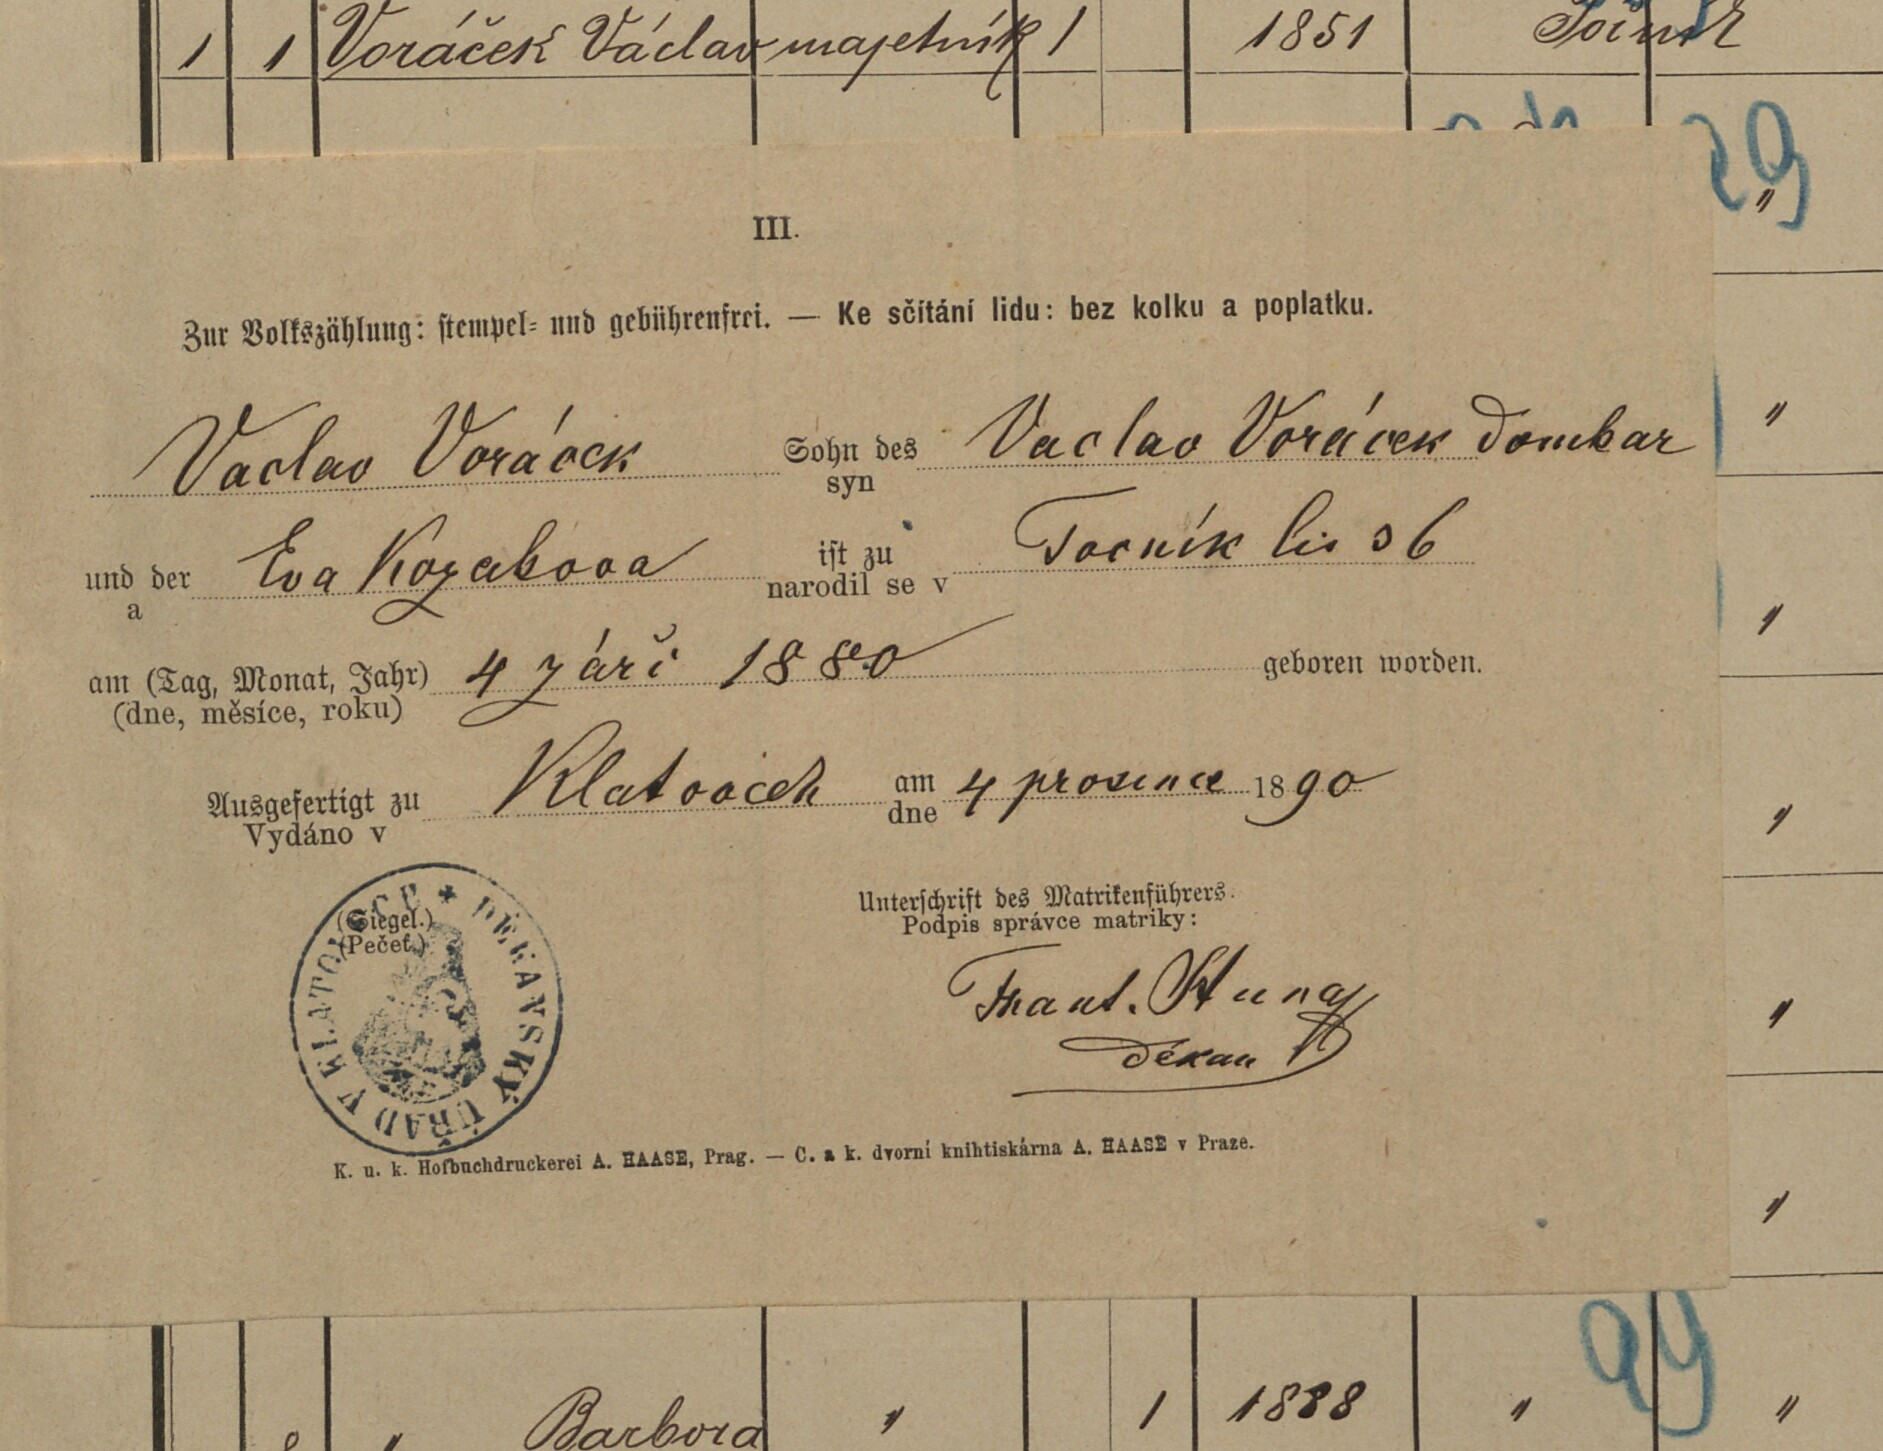 1 1 Voráček Václav majetník 1 1851 Točník
29
"
III.
Zur Volkszählung: stempel- und gebührenfrei. — Ke sčítání lidu: bez kolku a poplatku.
Vaclav Voráček Sohn des Vaclav Voráček domkar
syn
und der Eva Kozakova ist zu Tocník čis 36
a narodil se v
am (Tag, Monat, Jahr) 4 září 1880 geboren worden.
(dne, měsíce, roku)
Ausgefertigt zu Klatovách am 4 prosince 1890
Vydáno v dne
(Siegel.)
(Pečeť.)
DĚKANSKÝ ÚŘAD V KLATOVECH
Unterschrift des Matrikenführers.
Podpis správce matriky:
Frant.
děkan
K. u. k. Hofbuchdruckerei A. HAASE, Prag. — C. a k. dvorní knihtiskárna A. HAASE v Praze.
" Barbora " 1 1888 " "